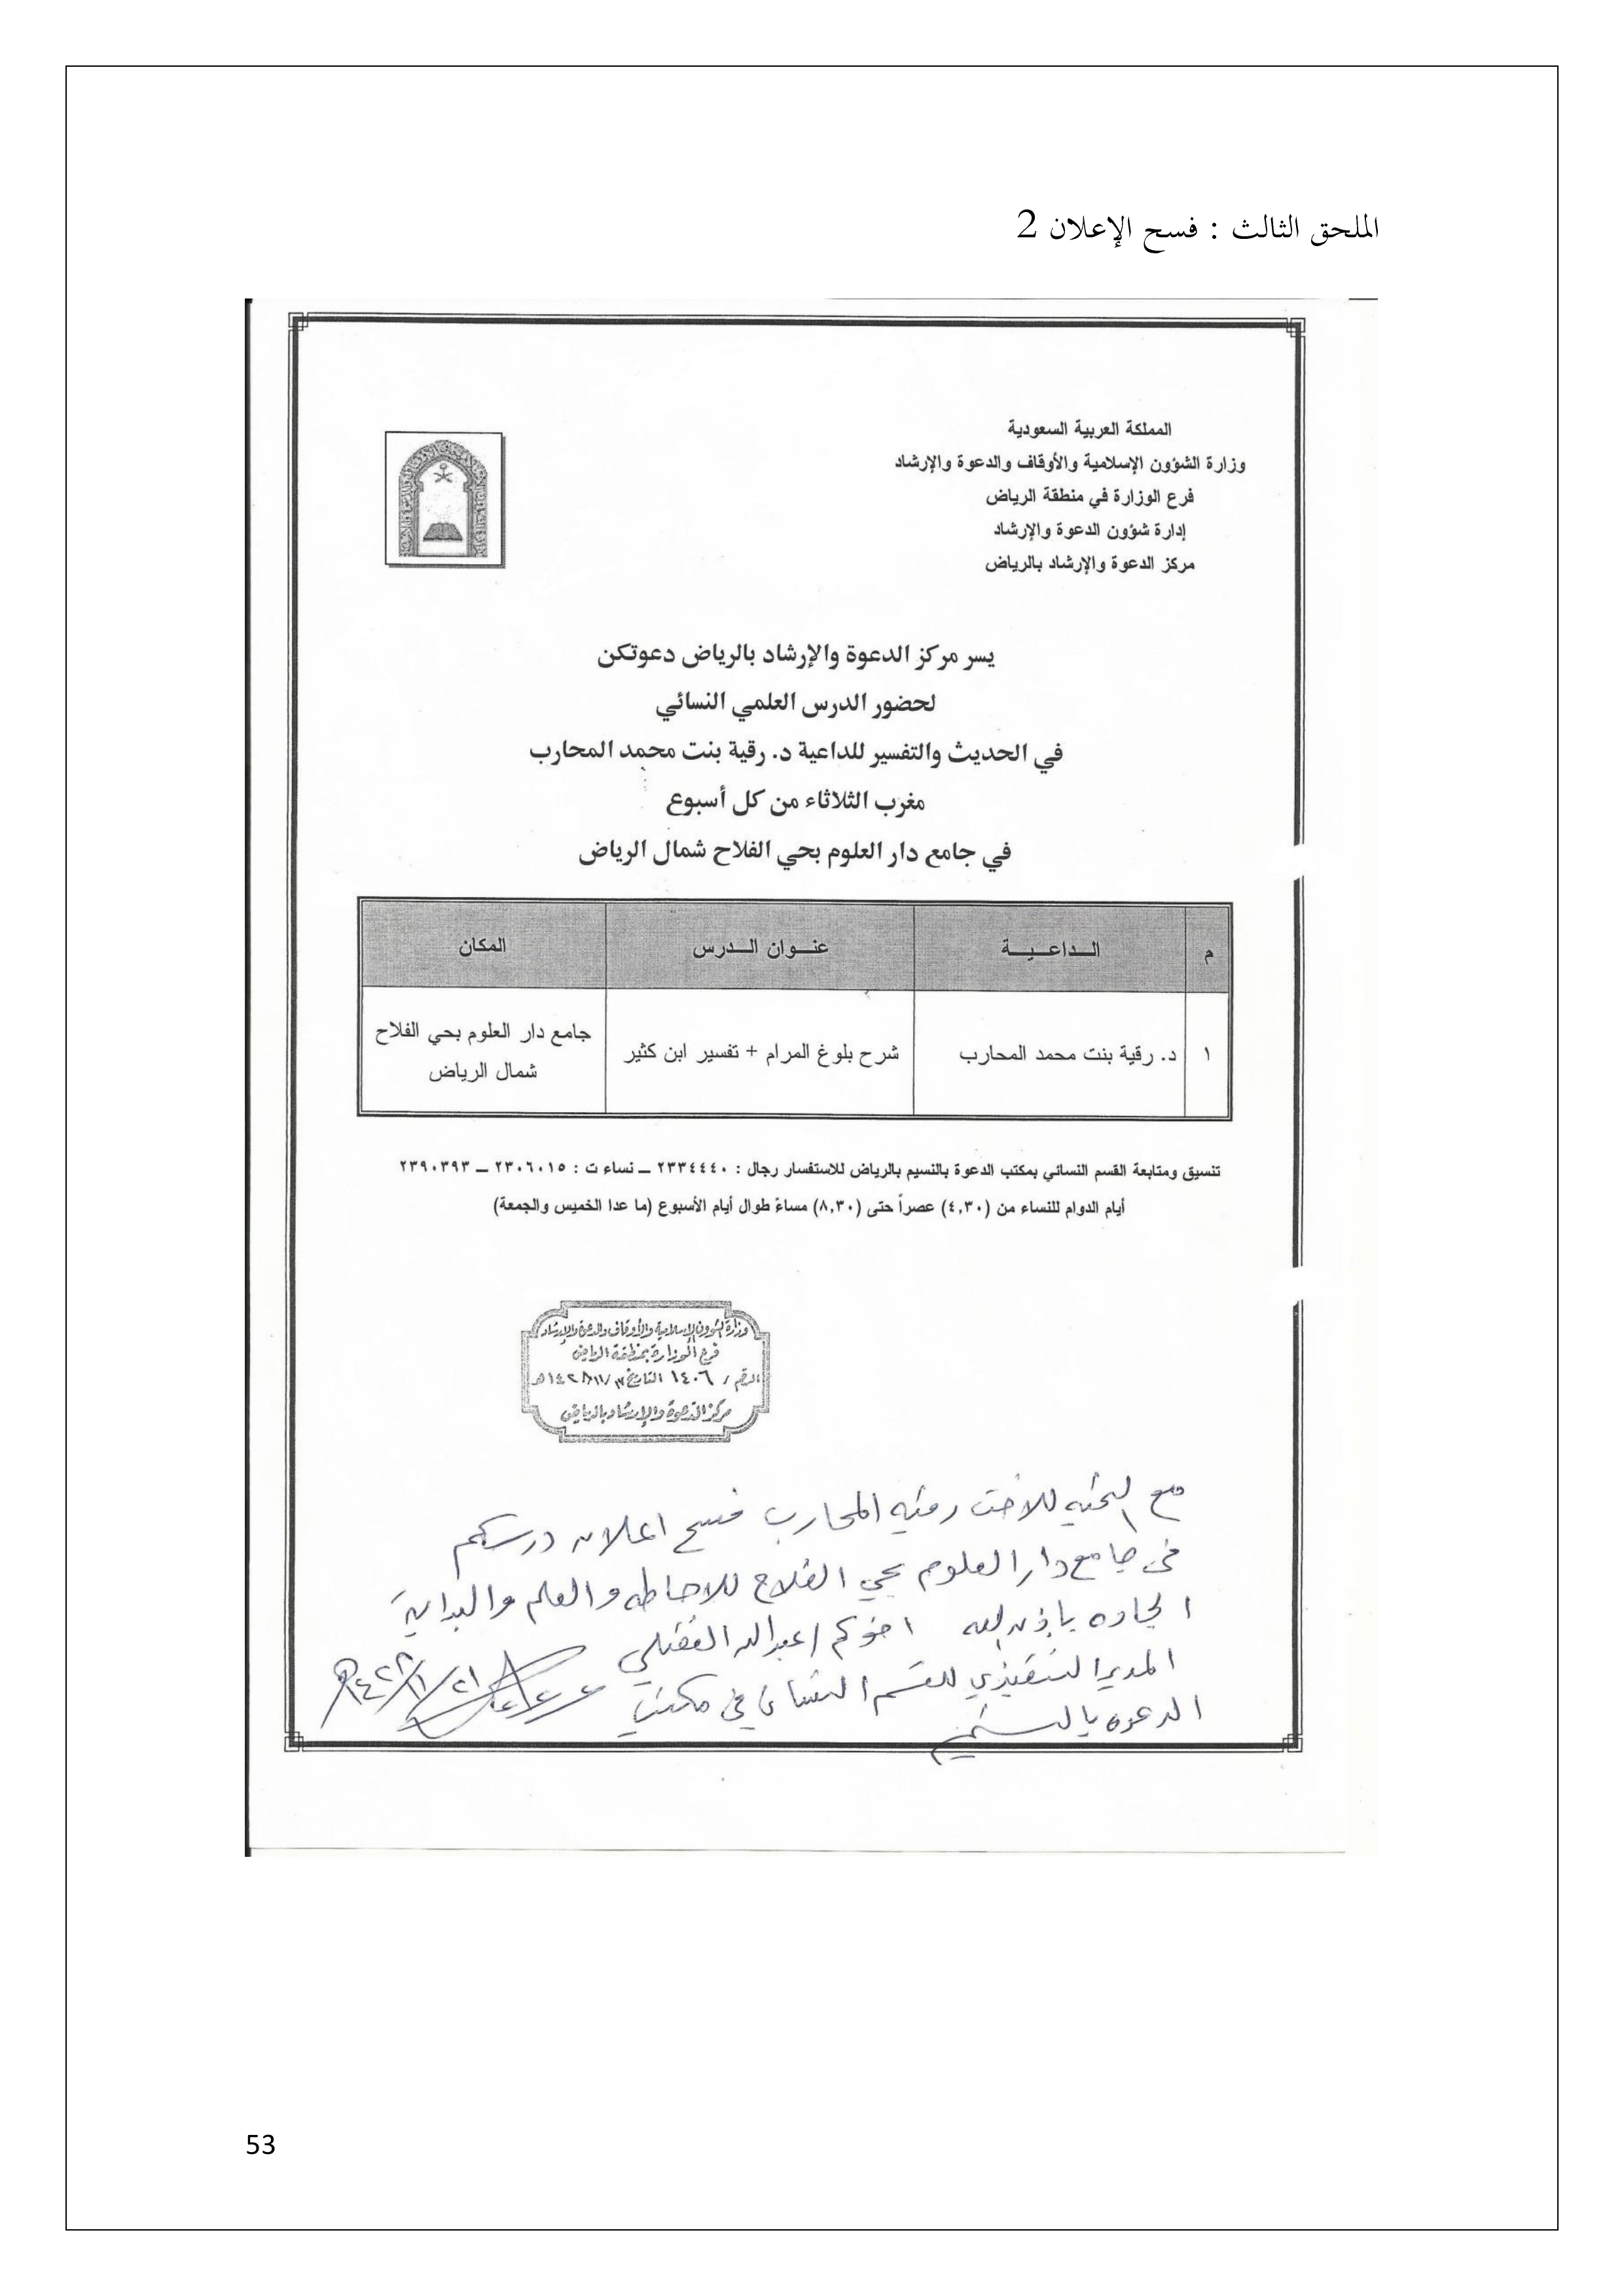 الملحق الثالث : فسح الإعلان 2
المملكة العربية السعودية
وزارة الشؤون الإسلامية والأوقاف والدعوة والإرشاد
فرع الوزارة في منطقة الرياض
إدارة شؤون الدعوة والإرشاد
مركز الدعوة والإرشاد بالرياض
يسر مركز الدعوة والإرشاد بالرياض دعوتكن
لحضور الدرس العلمي النسائي
في الحديث والتفسير للداعية د. رقية بنت محمد المحارب
مغرب الثلاثاء من كل أسبوع
في جامع دار العلوم بحي الفلاح شمال الرياض
م الـداعـيـة عنـوان الـدرس المكان
١ د. رقية بنت محمد المحارب شرح بلوغ المرام + تفسير ابن كثير جامع دار العلوم بحي الفلاح
شمال الرياض
تنسيق ومتابعة القسم النسائي بمكتب الدعوة بالنسيم بالرياض للاستفسار رجال : ٢٣٣٤٤٤٠ ـ نساء ت : ٢٣٠٦٠١٥ ـ ٢٣٩٠٣٩٣
أيام الدوام للنساء من (٤,٣٠) عصراً حتى (٨,٣٠) مساءً طوال أيام الأسبوع (ما عدا الخميس والجمعة)
وزارة الشؤون الإسلامية والأوقاف والدعوة والإرشاد
فرع الوزارة بمنطقة الرياض
الرقم / ١٤٠٦ التاريخ
مركز الدعوة والإرشاد بالرياض
مع التحيه للاخت رقيه المحارب فسح اعلان درسكم
في جامع دار العلوم بحي الفلاح للاحاطه والعلم والبداية
الجاده باذن الله اخوكم / عبدالله
المدير التنفيذي للقسم النسائي في مكتب
الدعوه بالنسيم
53